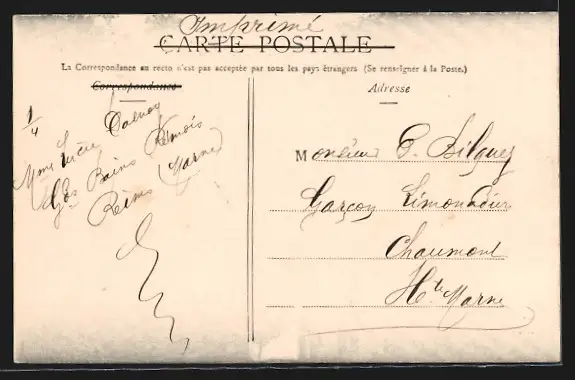 Imprimé
CARTE POSTALE
La Correspondance au recto n'est pas acceptée par tous les pays étrangers (Se renseigner à la Poste.)
Correspondance
Adresse
1/4
Mme
Bains Rémois
Reims (Marne)
Monsieur E.
Garçon Limonadier
Chaumont
Hte Marne